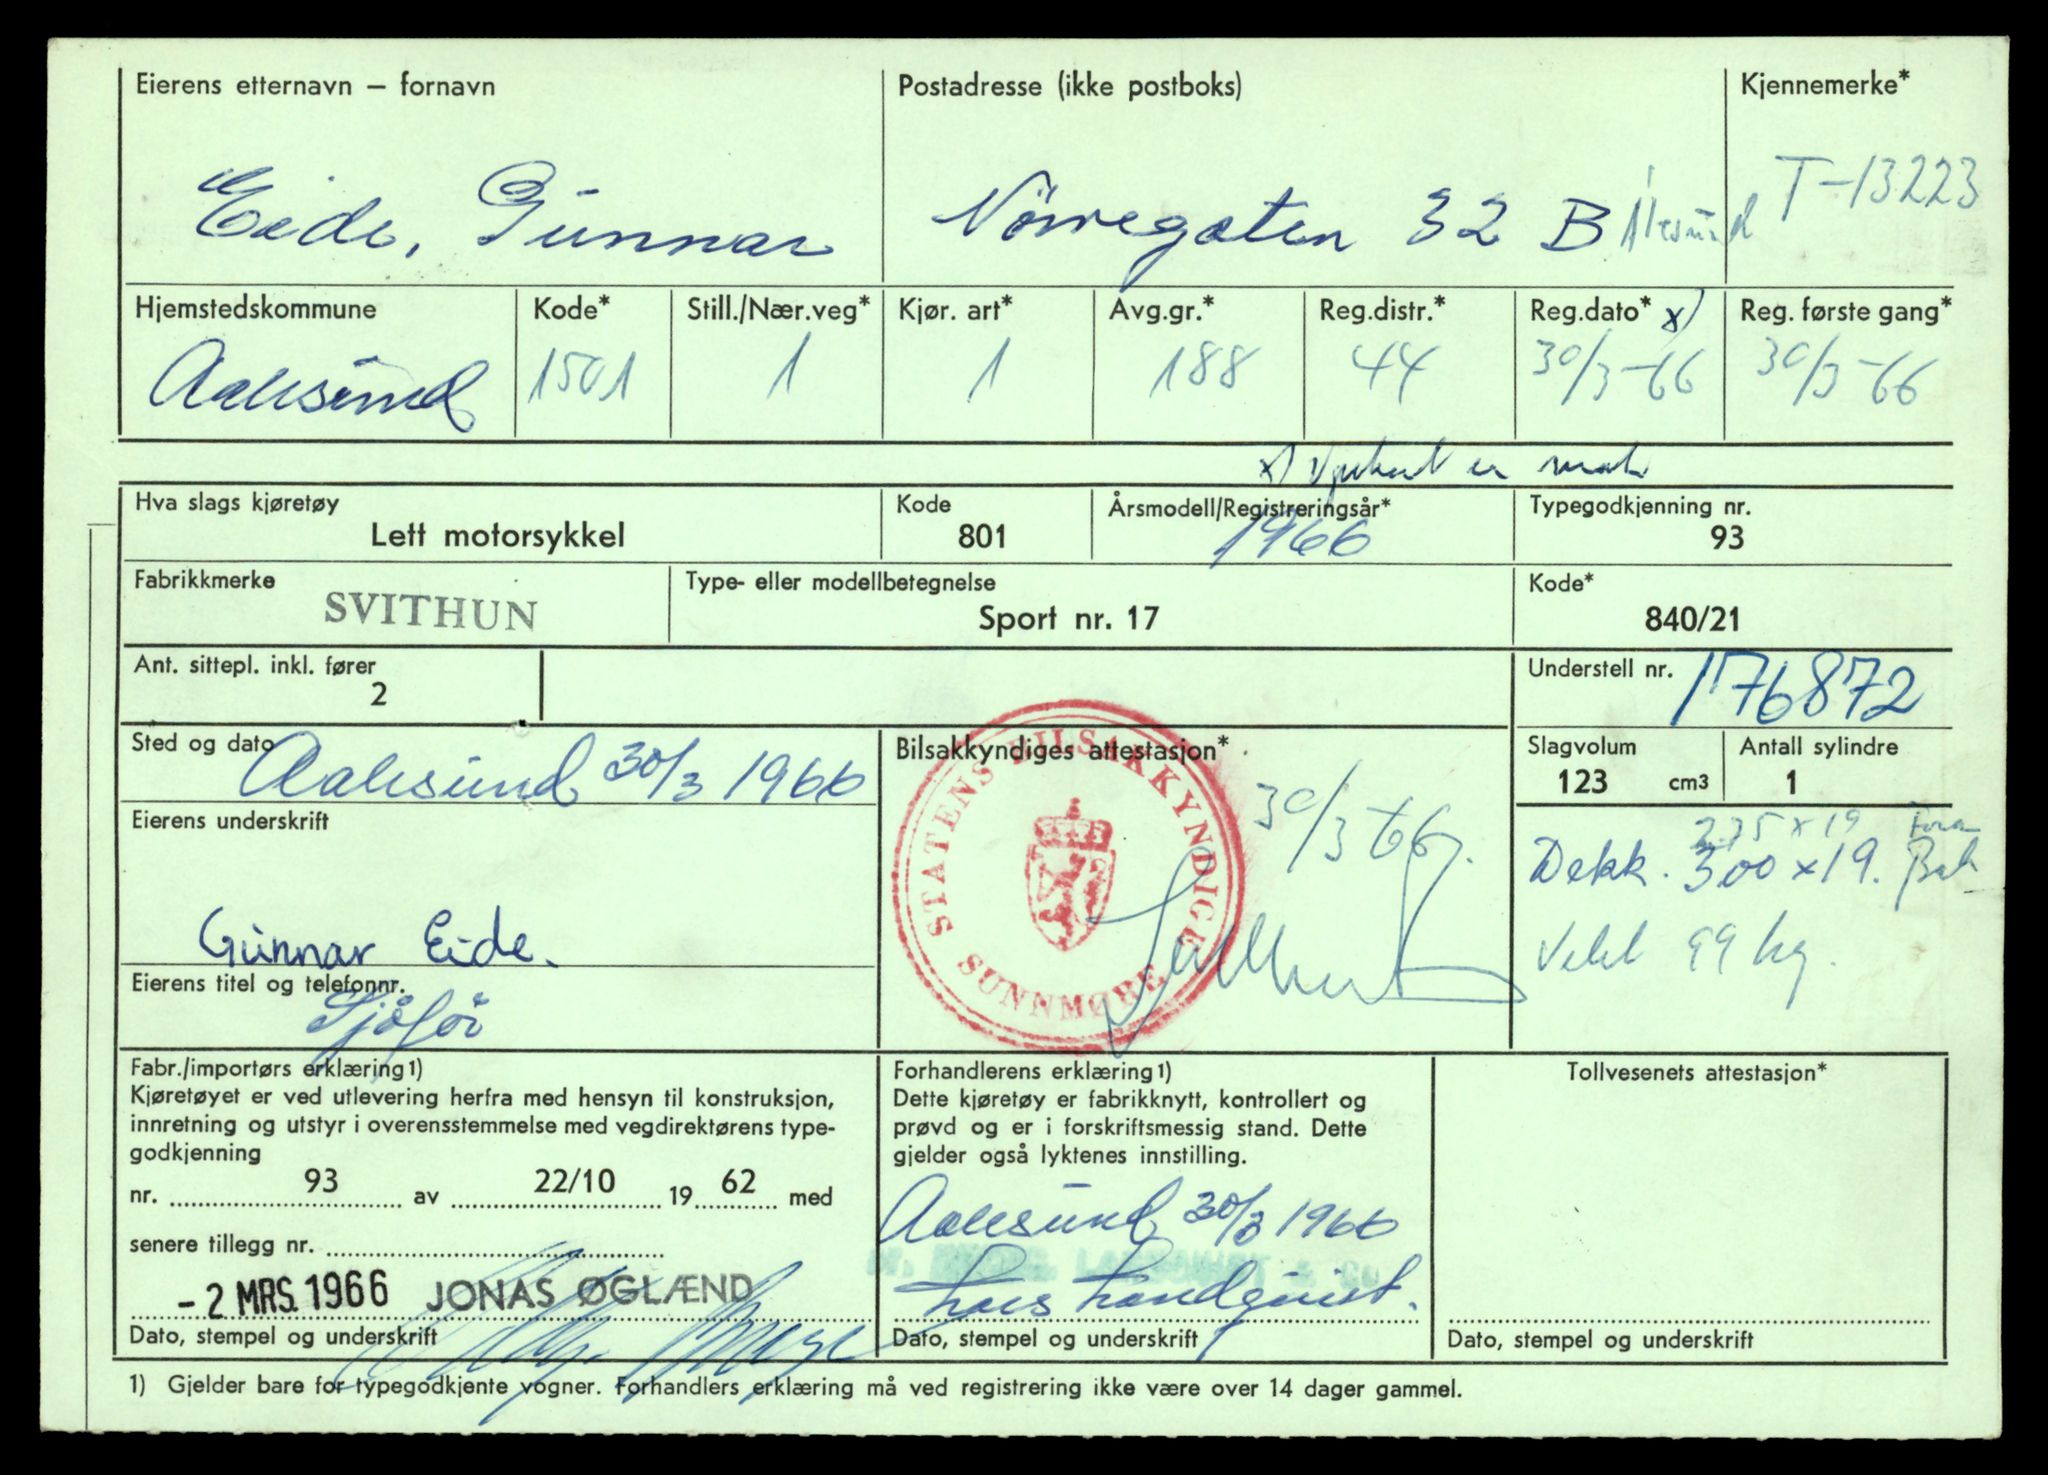 Eierens etternavn – fornavn Postadresse (ikke postboks) Kjennemerke*
Eide, Gunnar Nörregaten 32 B Ålesund T-13223
Hjemstedskommune Kode* Still./Nær.veg* Kjør. art* Avg.gr.* Reg.distr.* Reg.dato* x) Reg. første gang*
Aalesund 1501 1 1 188 44 30/3-66 30/3-66
x) er
Hva slags kjøretøy Kode Årsmodell/Registreringsår* Typegodkjenning nr.
Lett motorsykkel 801 1966 93
Fabrikkmerke Type- eller modellbetegnelse Kode*
SVITHUN Sport nr. 17 840/21
Ant. sittepl. inkl. fører Understell nr.
2 176872
Sted og dato Bilsakkyndiges attestasjon* Slagvolum Antall sylindre
Aalesund 30/3 1966 30/3-66. 123 cm3 1
STATENS BILSAKKYNDIGE SUNNMØRE
Eierens underskrift
2.75 x 19 Foran
Dekk. 300 x 19. Bak
Gunnar Eide.
Vekt 99 kg.
Eierens titel og telefonnr.
Sjåfør
Fabr./importørs erklæring1)
Kjøretøyet er ved utlevering herfra med hensyn til konstruksjon,
innretning og utstyr i overensstemmelse med vegdirektørens type-
godkjenning
nr. 93 av 22/10 19 62 med
senere tillegg nr.
- 2 MRS. 1966 JONAS ØGLÆND
Dato, stempel og underskrift
Forhandlerens erklæring1)
Dette kjøretøy er fabrikknytt, kontrollert og
prøvd og er i forskriftsmessig stand. Dette
gjelder også lyktenes innstilling.
Aalesund 30/3 1966
Lars Landquist.
Dato, stempel og underskrift
Tollvesenets attestasjon*
Dato, stempel og underskrift
1) Gjelder bare for typegodkjente vogner. Forhandlers erklæring må ved registrering ikke være over 14 dager gammel.